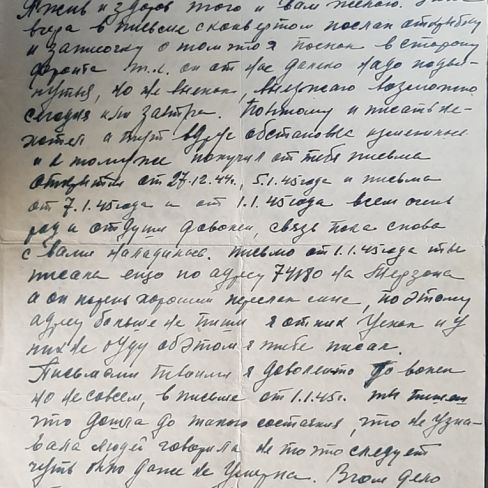 Я жив и здоров того и вам желаю.
вчера в письме с конвертом послал открытку
и записочку о том что я поехал в сторону
фронта т.к. он от нас далеко надо подвы-
нуться, но не выехал, выезжаю возможно
сегодня или завтра. Поэтому и писать не-
хотел а тут вдруг обстановка изменилась
и к тому же получил от тебя письма
открытки от 27.12.44г., 5.1.45 года и письма
от 7.1.45 года и от 1.1.45 года всем очень
рад и от души доволен, связь пока снова
с вами наладилась. письмо от 1.1.45 года ты
писала ещо по адресу 74180 на Мерзона
а он парень хороший переслал мне, по этому
адресу больше не пиши я от них уехал и у
них не буду об этом я тебе писал.
Письмами твоими я доволен то доволен
но не совсем, в письме от 1.1.45г. ты пишеш
что дошла до такого состояния, что не узна-
вала людей говорила не то что следует
чуть было даже не умерла. В чом дело